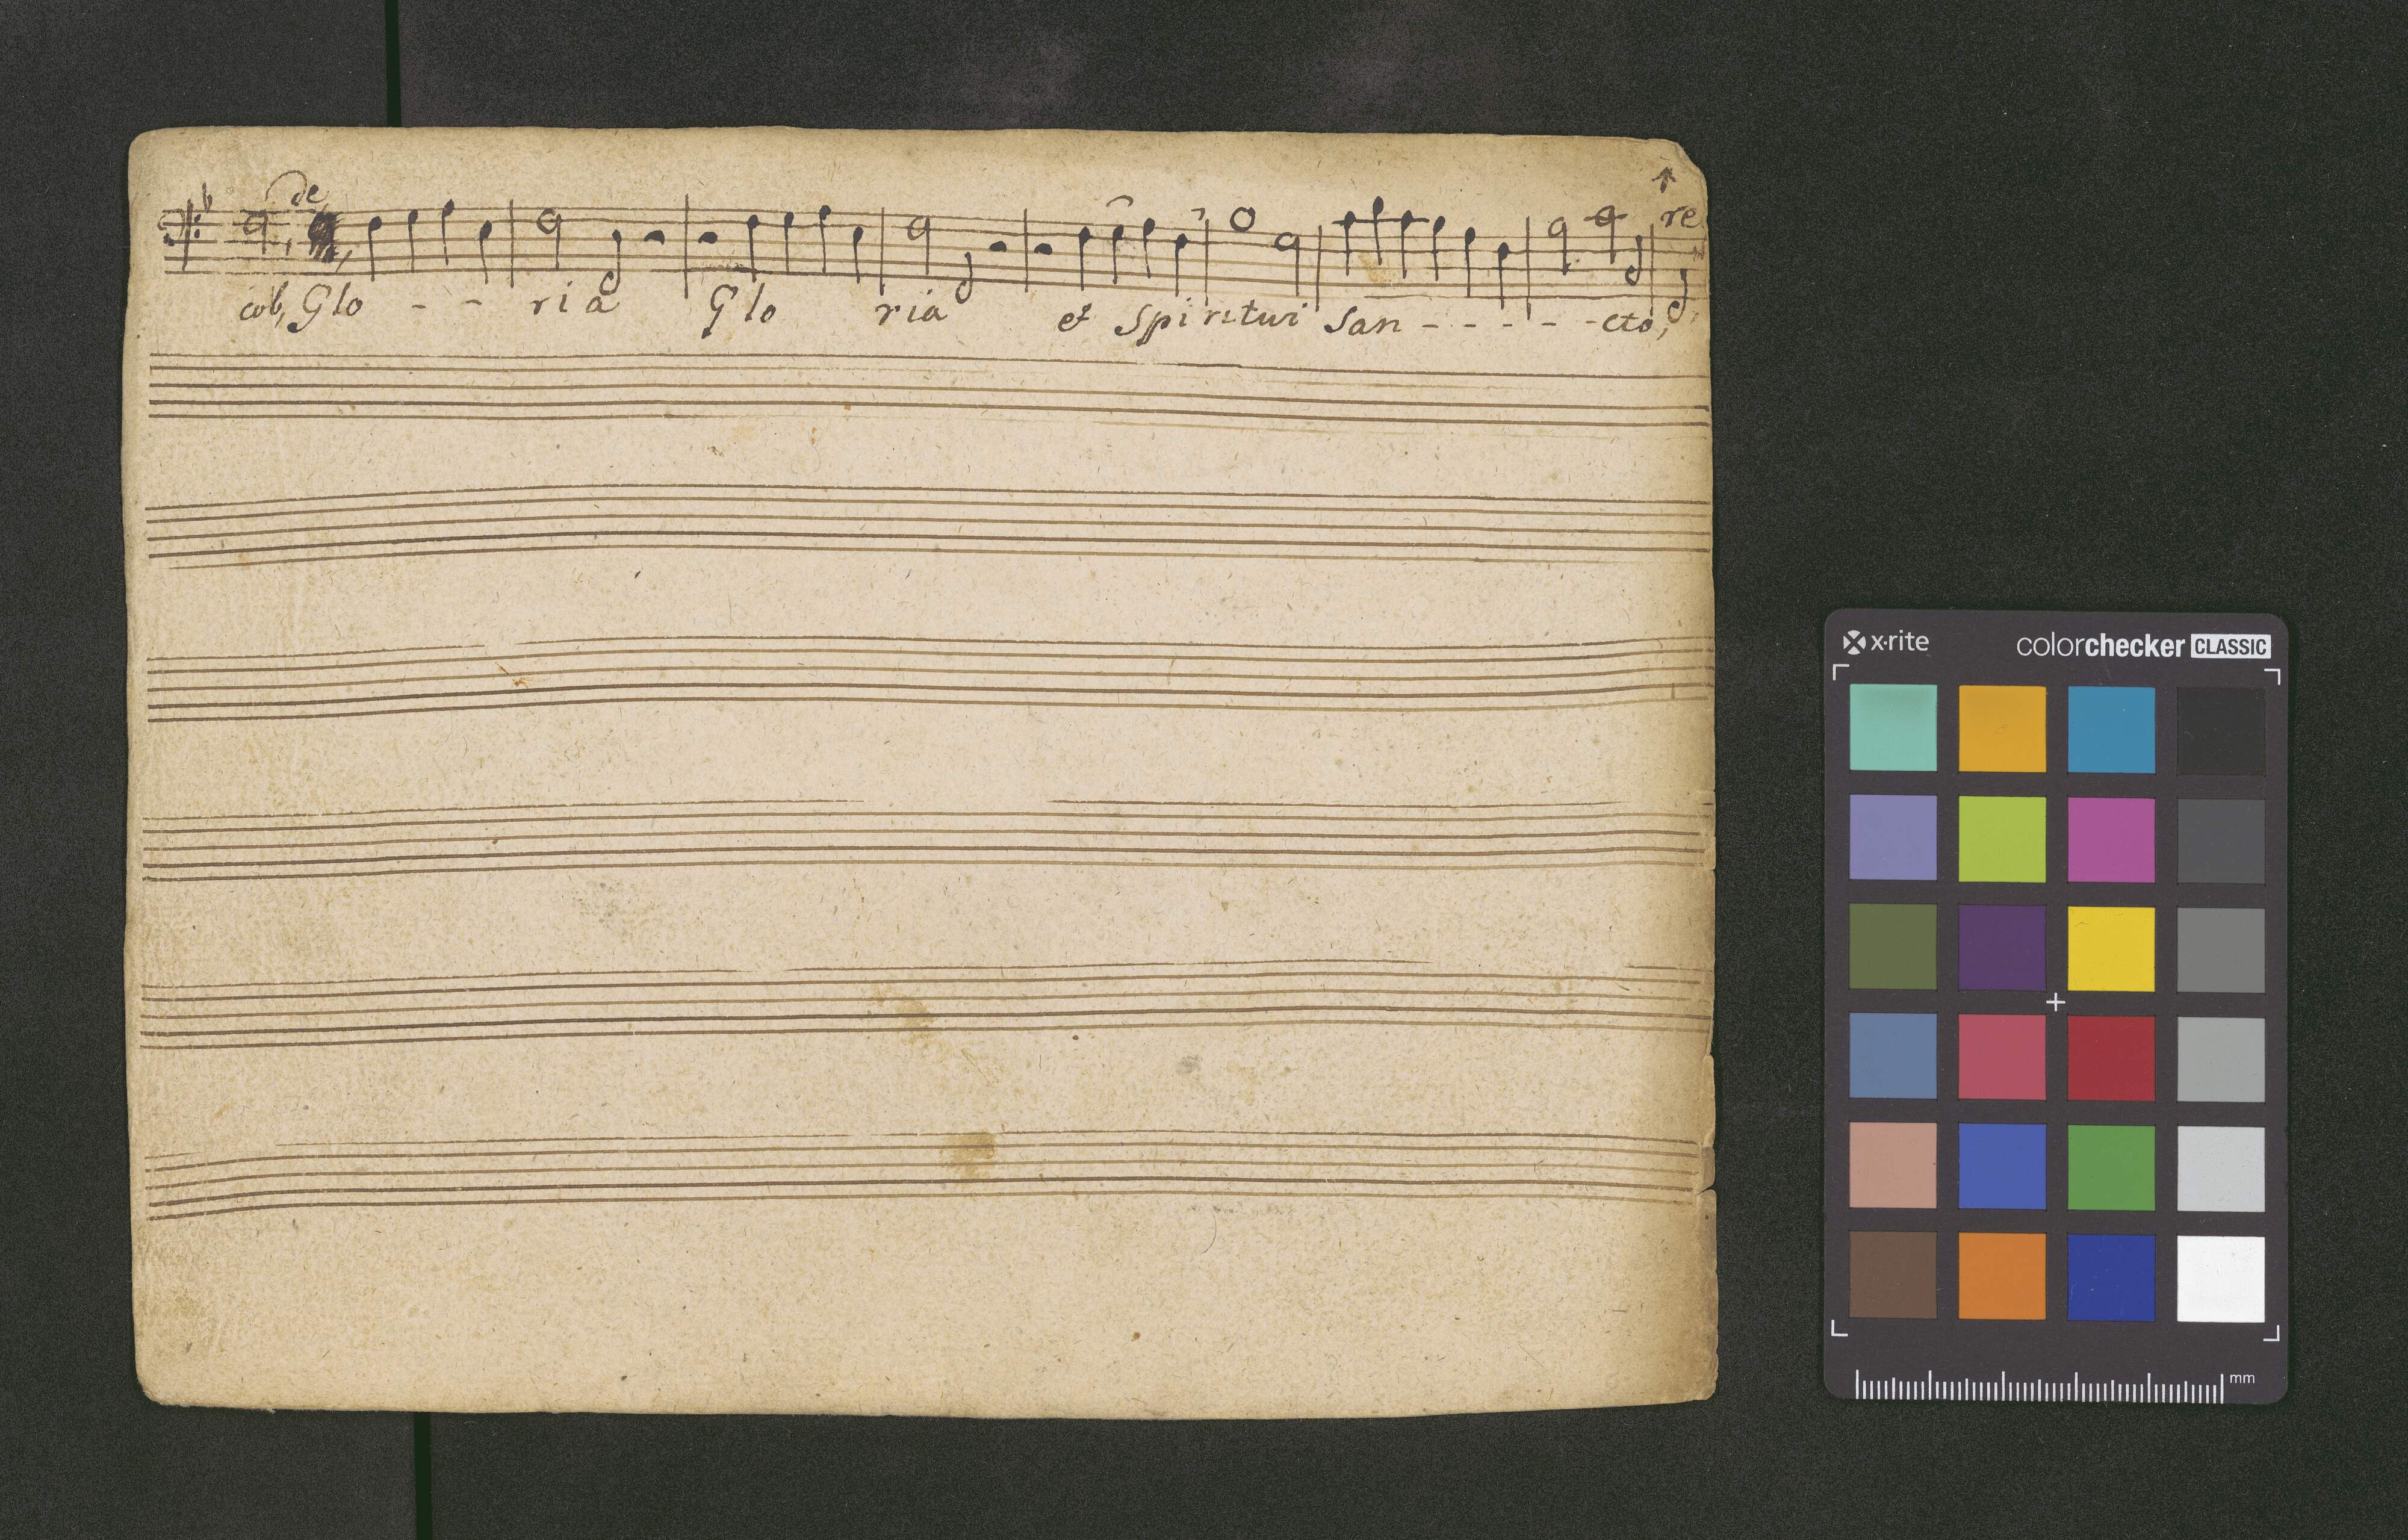 de
re
cob, Glo - - ria Glo ria et Spiritui San - - - - - cto,
x-rite colorchecker CLASSIC
mm